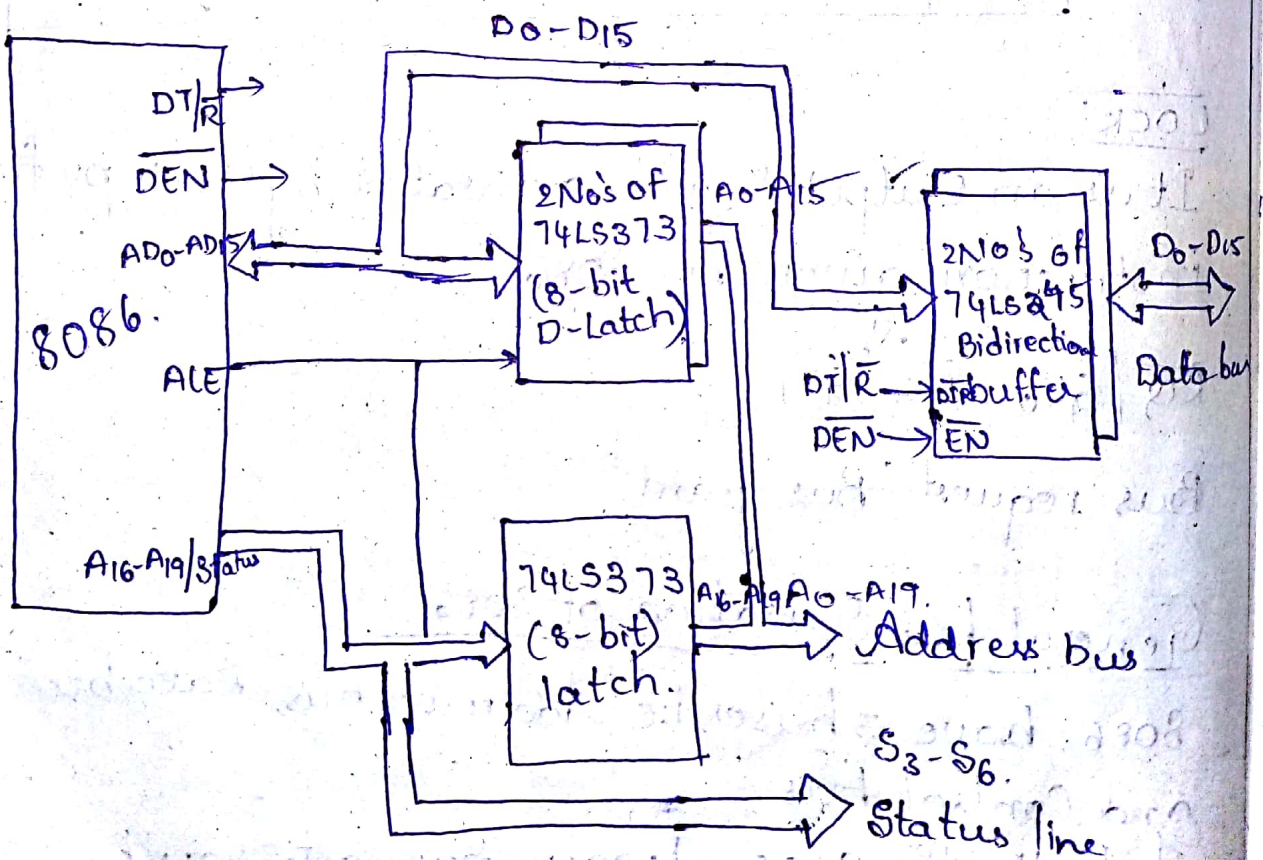 D0-D15
DT/R̅
D̅E̅N̅
AD0-AD15
8086.
ALE
A16-A19/Status
2No's of
74LS373
(8-bit
D-Latch)
A0-A15
2No's of
74LS245
Bidirection
buffer
DT/R̅
DIR
D̅E̅N̅
E̅N̅
D0-D15
Data bus
74LS373
(8-bit)
latch.
A16-A19
A0-A19.
Address bus
S3-S6.
Status line